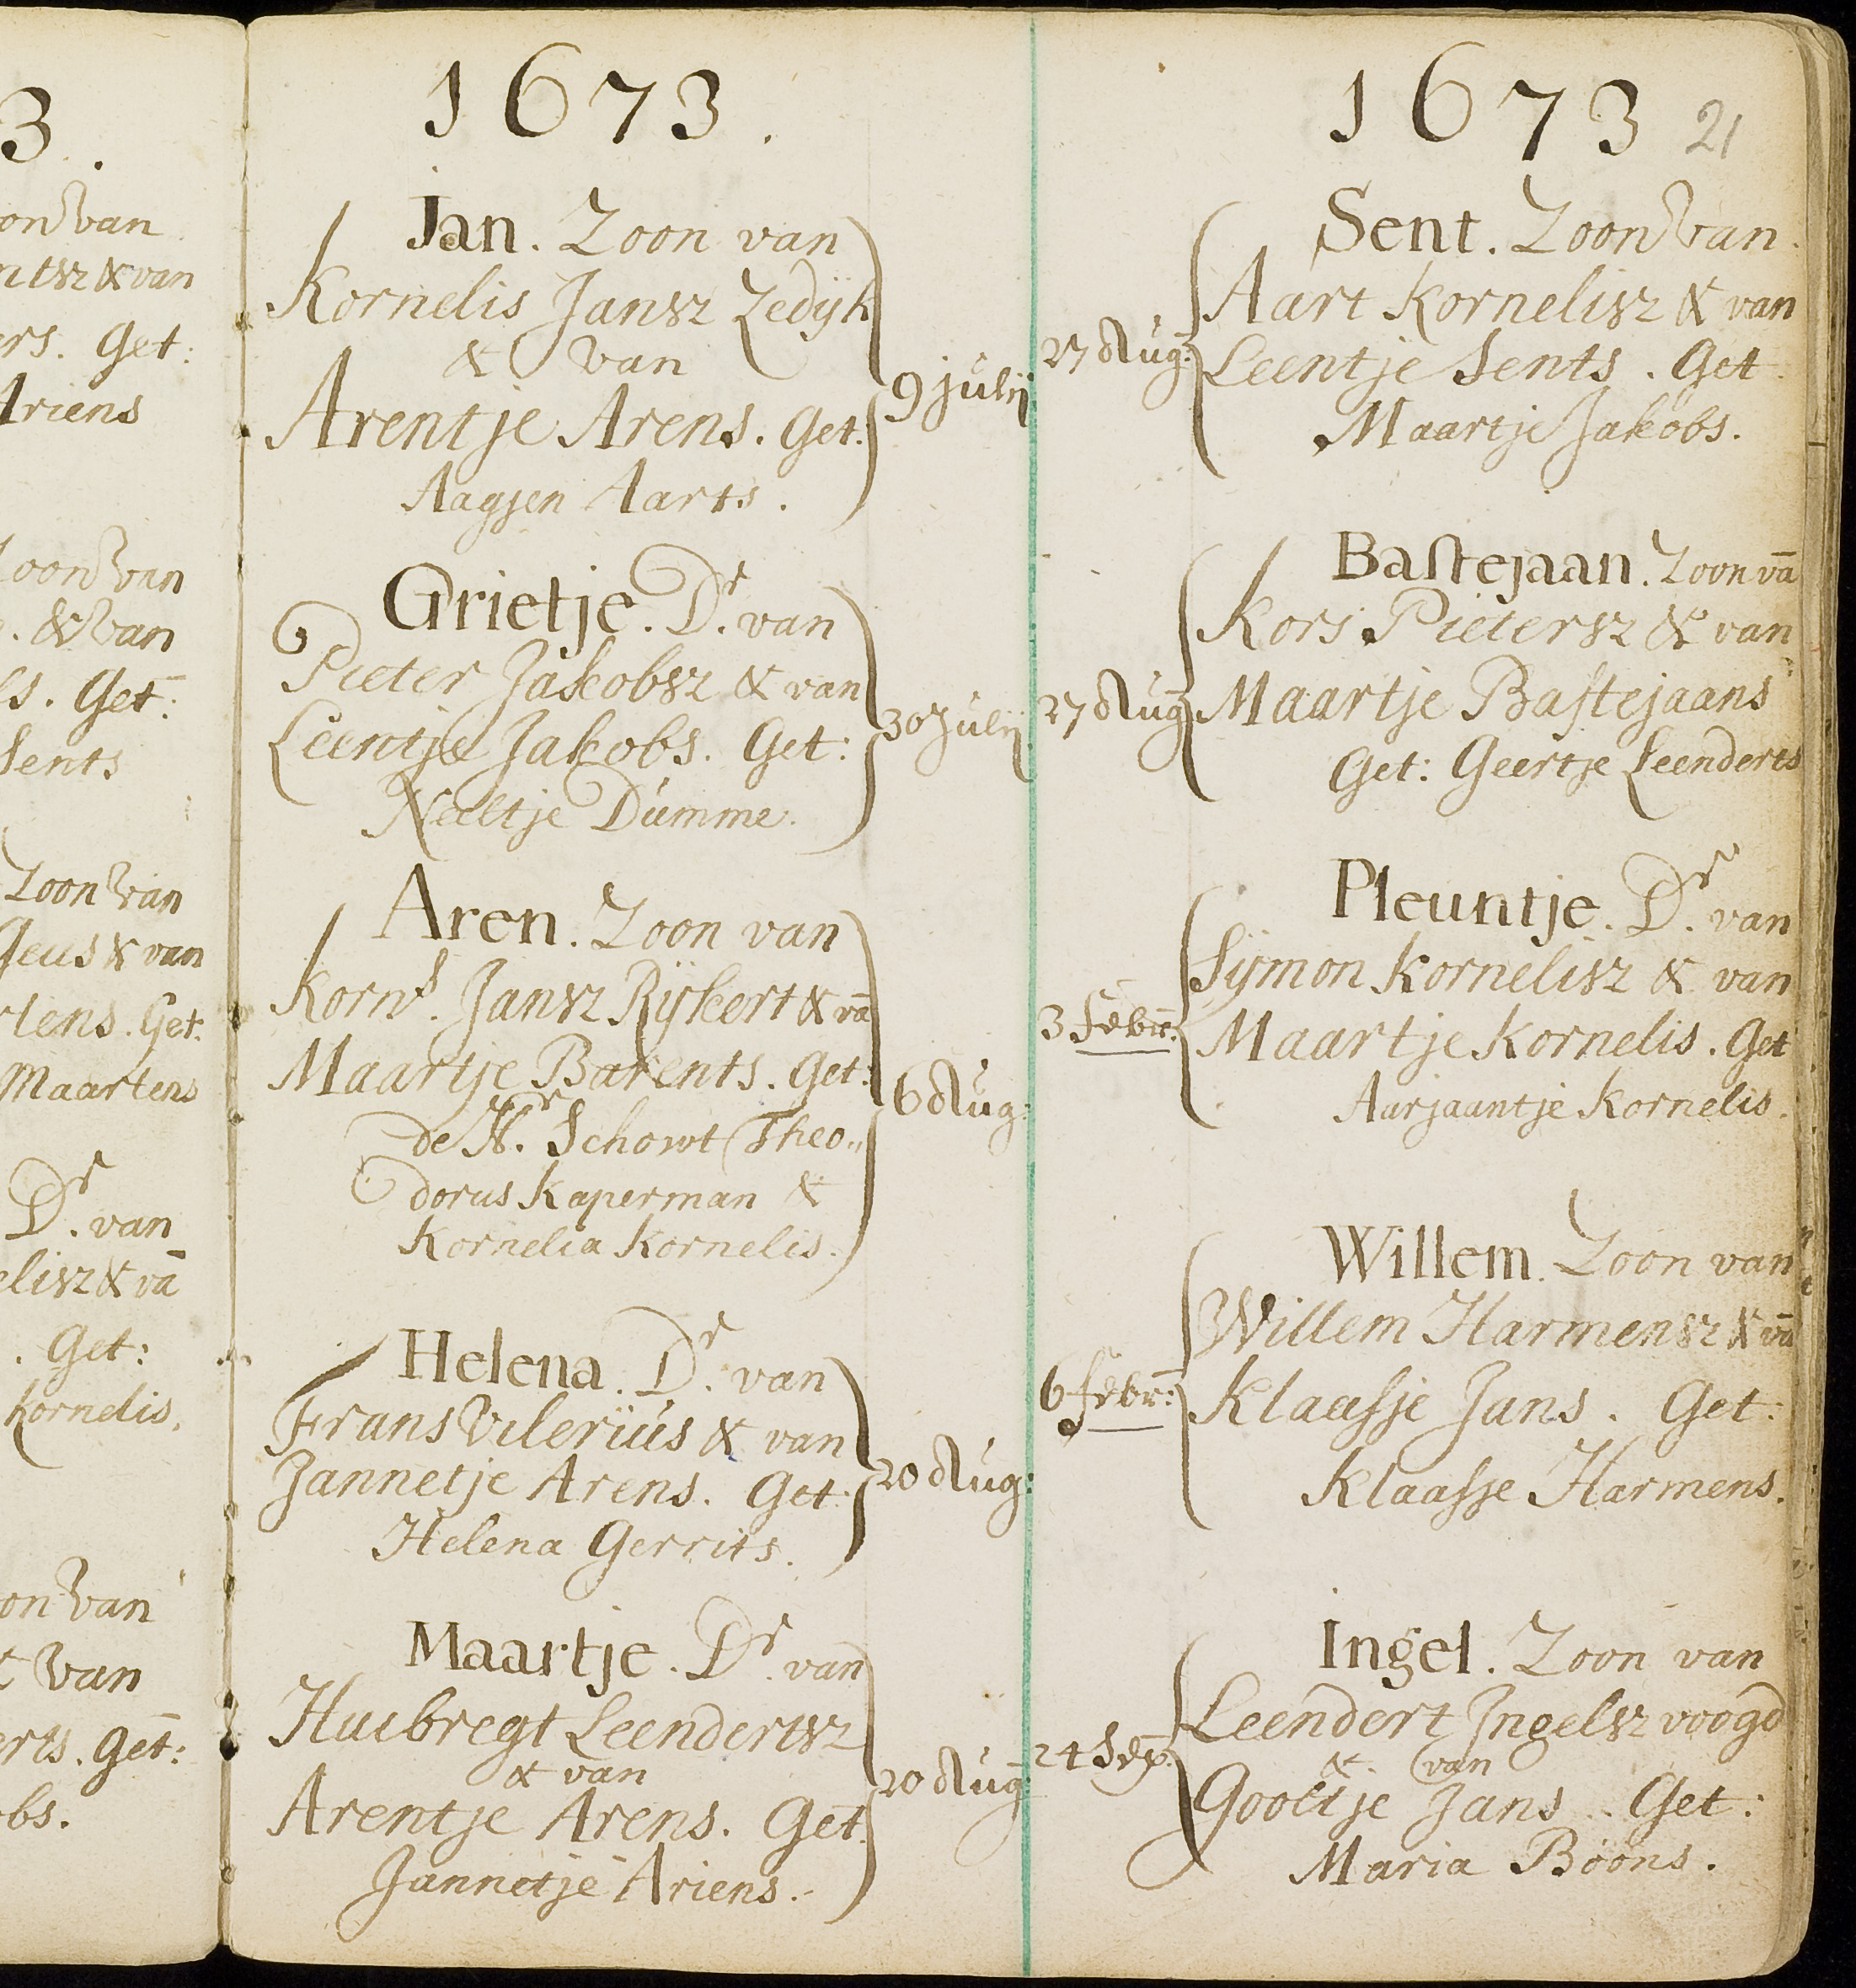 3.
on van
ntsz & van
ers. Get:
Ariens
Zoon van
. & van
ls. Get:
Sents
Zoon van
Jeus & van
rtens. Get.
Maartens
Dr. van
elisz & vā
. Get:
Kornelis.
on van
& van
erts. Get:
obs.
1673.
Jan. Zoon van
Kornelis Jansz Zedijk
& van
Arentje Arens. Get:
Aagjen Aarts.
9 julij
Grietje. Dr. van
Pieter Jakobsz & van
Leentje Jakobs. Get:
Neeltje Dumme.
30 Julij
Aren. Zoon van
Korns. Jansz Rijkert & vā
Maartje Barents. Get:
de Hr. Schowt Theo„
dorus Kaperman &
Kornelia Kornelis.
6 Aug:
Helena. Dr. van
Frans Vilerius & van
Jannetje Arens. Get:
Helena Gerrits.
20 Aug:
Maartje. Dr. van
Huibregt Leendertsz
& van
Arentje Arens. Get.
Jannetje Ariens.
20 Aug:
1673 21
Sent. Zoon van
Aart Kornelisz & van
27 Aug:
Leentje Sents. Get.
Maartje Jakobs.
Bastejaan. Zoon vā
Kors Pietersz & van
27 Aug
Maartje Bastejaans
Get: Geertje Leenderts
Pleuntje. Dr. van
Sijmon Kornelisz & van
3 Febr:
Maartje Kornelis. Get
Aarjaantje Kornelis.
Willem. Zoon van
Willem Harmensz & vā
6 Febr:
Klaasje Jans. Get:
Klaasje Harmens.
Ingel. Zoon van
Leendert Ingelsz voogd
24 Sep.
& van
Gooltje Jans. Get:
Maria Boons.